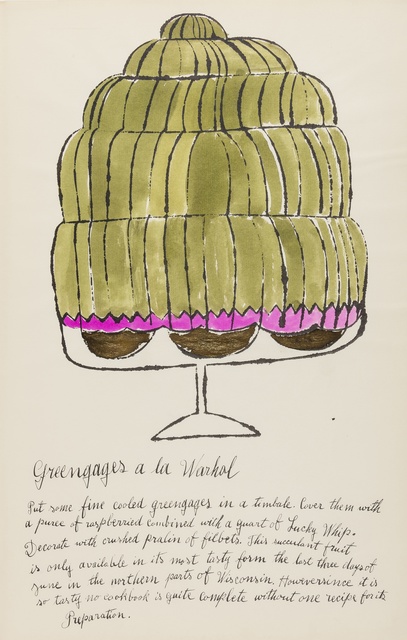 Greengages a la Warhol
Put some fine cooled greengages in a timbale. Cover them with
a puree of raspberried combined with a quart of Lucky Whip.
Decorate with crushed pralin of filbets. This succulent fruit
is only available in its most tasty form the last three days of
June in the northern parts of Wisconsin. Howeversince it is
so tasty no cookbook is quite complete without one recipe for its
Preparation.